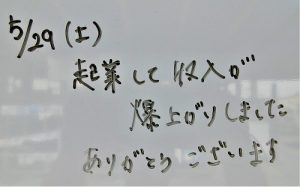 5/29(土)
起業して収入が
爆上がりしました
ありがとうございます